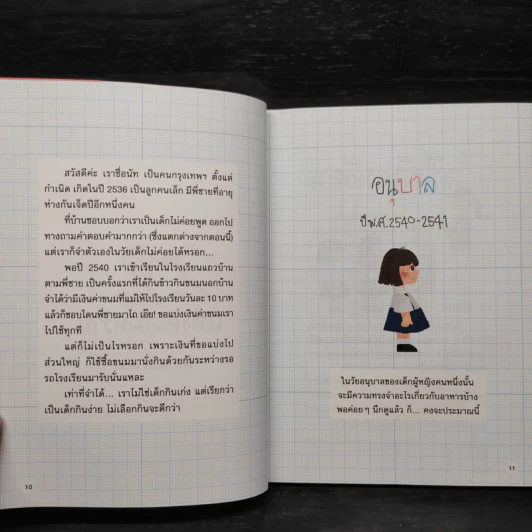 สวัสดีค่ะ เราชื่อนัท เป็นคนกรุงเทพฯ ตั้งแต่
กำเนิด เกิดในปี 2536 เป็นลูกคนเล็ก มีพี่ชายที่อายุ
ห่างกันเจ็ดปีอีกหนึ่งคน
ที่บ้านชอบบอกว่าเราเป็นเด็กไม่ค่อยพูด ออกไป
ทางถามคำตอบคำมากกว่า (ซึ่งแตกต่างจากตอนนี้)
แต่เราก็จำตัวเองในวัยเด็กไม่ค่อยได้หรอก...
พอปี 2540 เราเข้าเรียนในโรงเรียนแถวบ้าน
ตามพี่ชาย เป็นครั้งแรกที่ได้กินข้าวกินขนมนอกบ้าน
จำได้ว่ามีเงินค่าขนมที่แม่ให้ไปโรงเรียนวันละ 10 บาท
แล้วก็ชอบโดนพี่ชายมาไถ เอ๊ย! ขอแบ่งเงินค่าขนมเรา
ไปใช้ทุกที
แต่ก็ไม่เป็นไรหรอก เพราะเงินที่ขอแบ่งไป
ส่วนใหญ่ ก็ใช้ซื้อขนมมานั่งกินด้วยกันระหว่างรอ
รถโรงเรียนมารับนั่นแหละ
เท่าที่จำได้... เราไม่ใช่เด็กกินเก่ง แต่เรียกว่า
เป็นเด็กกินง่าย ไม่เลือกกินจะดีกว่า
10
อนุบาล
ปีพ.ศ.2540-2541
ในวัยอนุบาลของเด็กผู้หญิงคนหนึ่งนั้น
จะมีความทรงจำอะไรเกี่ยวกับอาหารบ้าง
พอค่อยๆ นึกดูแล้ว ก็... คงจะประมาณนี้
11